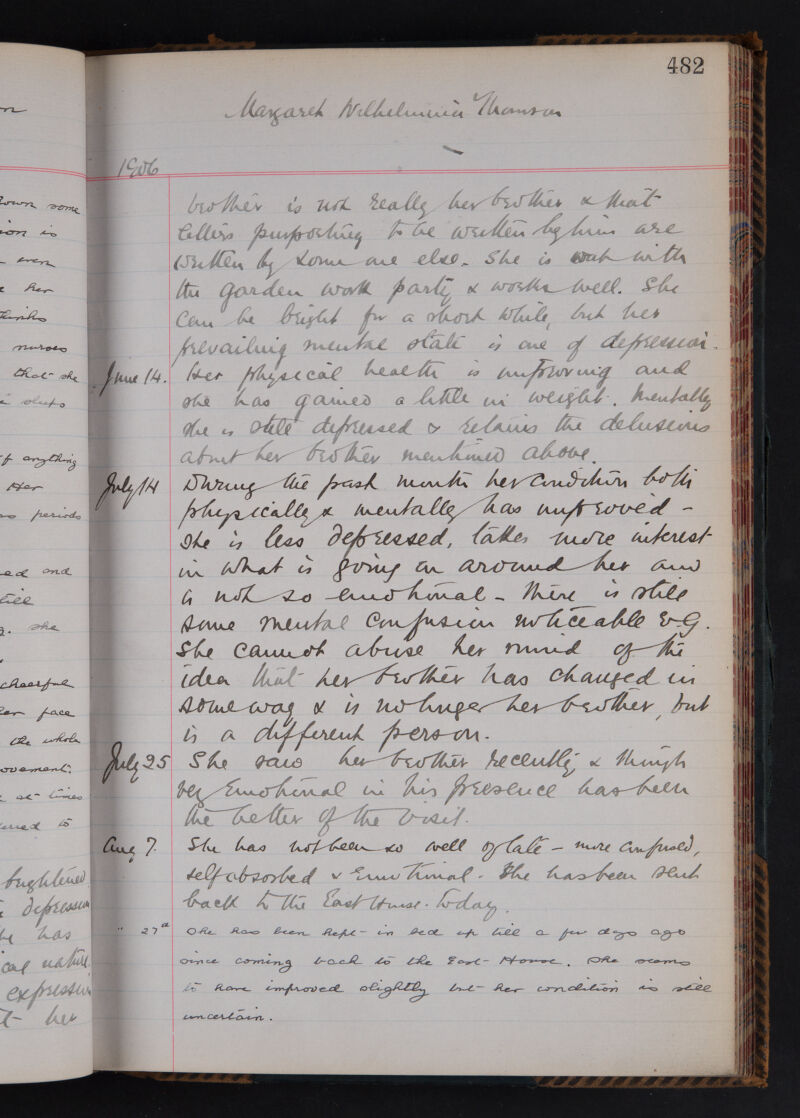 482
Margaret Wilhelmina Thomson
1906
brother is not really her brother & that
letters purporting to be written by him are
written by some one else. She is out with
the garden work party & works well. She
can be bright for a short while, but her
prevailing mental state is one of depression.
June 14. Her physical health is improving and
she has gained a little in weight. Mentally
she is still depressed & retains the delusions
about her brother mentioned above.
July 14 During the past month her condition both
physically & mentally has improved -
She is less depressed, takes more interest
in what is going on around her and
is not so emotional - There is still
some mental confusion noticeable e.G.
She cannot abuse her mind of the
idea that her brother has changed in
some way & is no longer her brother, but
is a different person.
July 25 She saw her brother recently, & though
very emotional in his presence has been
the better of the visit.
Aug 7. She has not been so well of late - more confused,
self absorbed & emotional. She has been sent
back to the East House. Today.
" 27th She has been kept in bed up till a few days ago
since coming back to the East House. She seems
to have improved slightly but her condition is still
uncertain.
own some
ion is
were
her
thinks
nurses
that she
sleeps
if anything
Her
periods
ed and
till
she
cheerful
her face
the whole
ovement.
at times
to
brightened
depression
he has
cal nature
expression
her